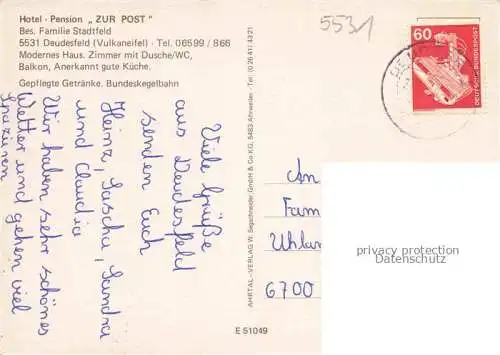 Hotel - Pension „ZUR POST"
Bes. Familie Stadtfeld
5531 Deudesfeld (Vulkaneifel) · Tel. 06599 / 866
Modernes Haus. Zimmer mit Dusche/WC,
Balkon, Anerkannt gute Küche.
Gepflegte Getränke. Bundeskegelbahn
5531
60
DEUTSCHE BUNDESPOST
Viele Grüße
aus Deudesfeld
senden Euch
Heinz, Sascha, Sandra
und Claudia
Wir haben sehr schönes
Wetter und gehen viel
spazieren
AHRTAL-VERLAG W. Segschneider GmbH & Co KG, 5483 Ahrweiler · Tel. (0 26 41) 43 21
An
Fam
Uhlan
6700
privacy protection
Datenschutz
E 51049